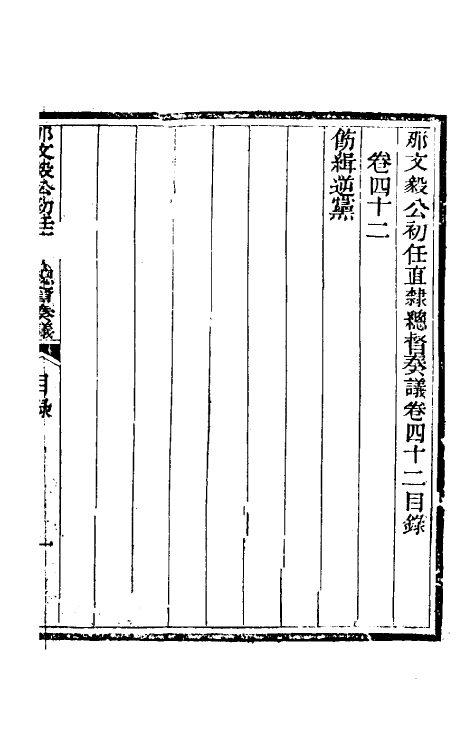 那文毅公初任直隸總督奏議卷四十二目錄
卷四十二
飭緝逆黨
那文毅公初任 總督奏議 目錄 一